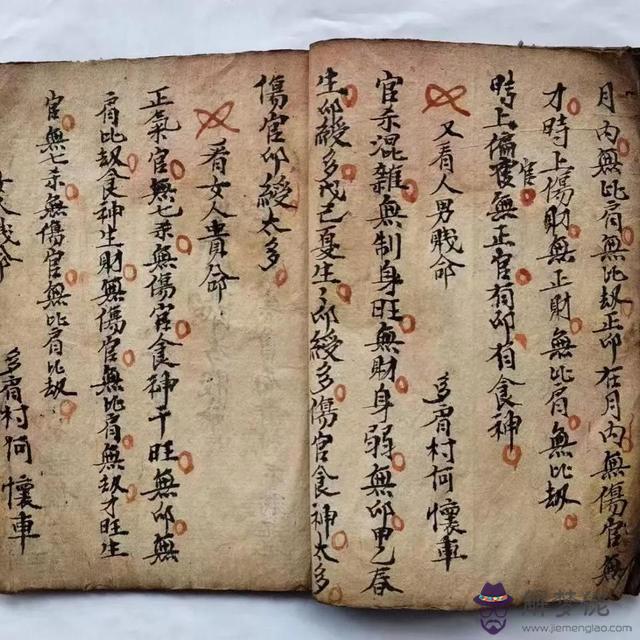 月內無比肩無比劫正印在月內無傷官無
才時上傷財無正財無比肩無比劫
時上偏官無正官有印有食神
又看人男賤命
多肩村何懷車
官杀混雜無制身旺無財身弱無印甲乙春
生印綬多戊己夏生印綬多傷官食神太多
傷官印綬太多
看女人貴命
正氣官無七杀無傷官食神干旺無印無
肩比劫食神生財無傷官無比肩無劫才旺生
官無七杀無傷官無比肩比劫
女人賤命
多肩村何懷車
www.jiemenglao.com